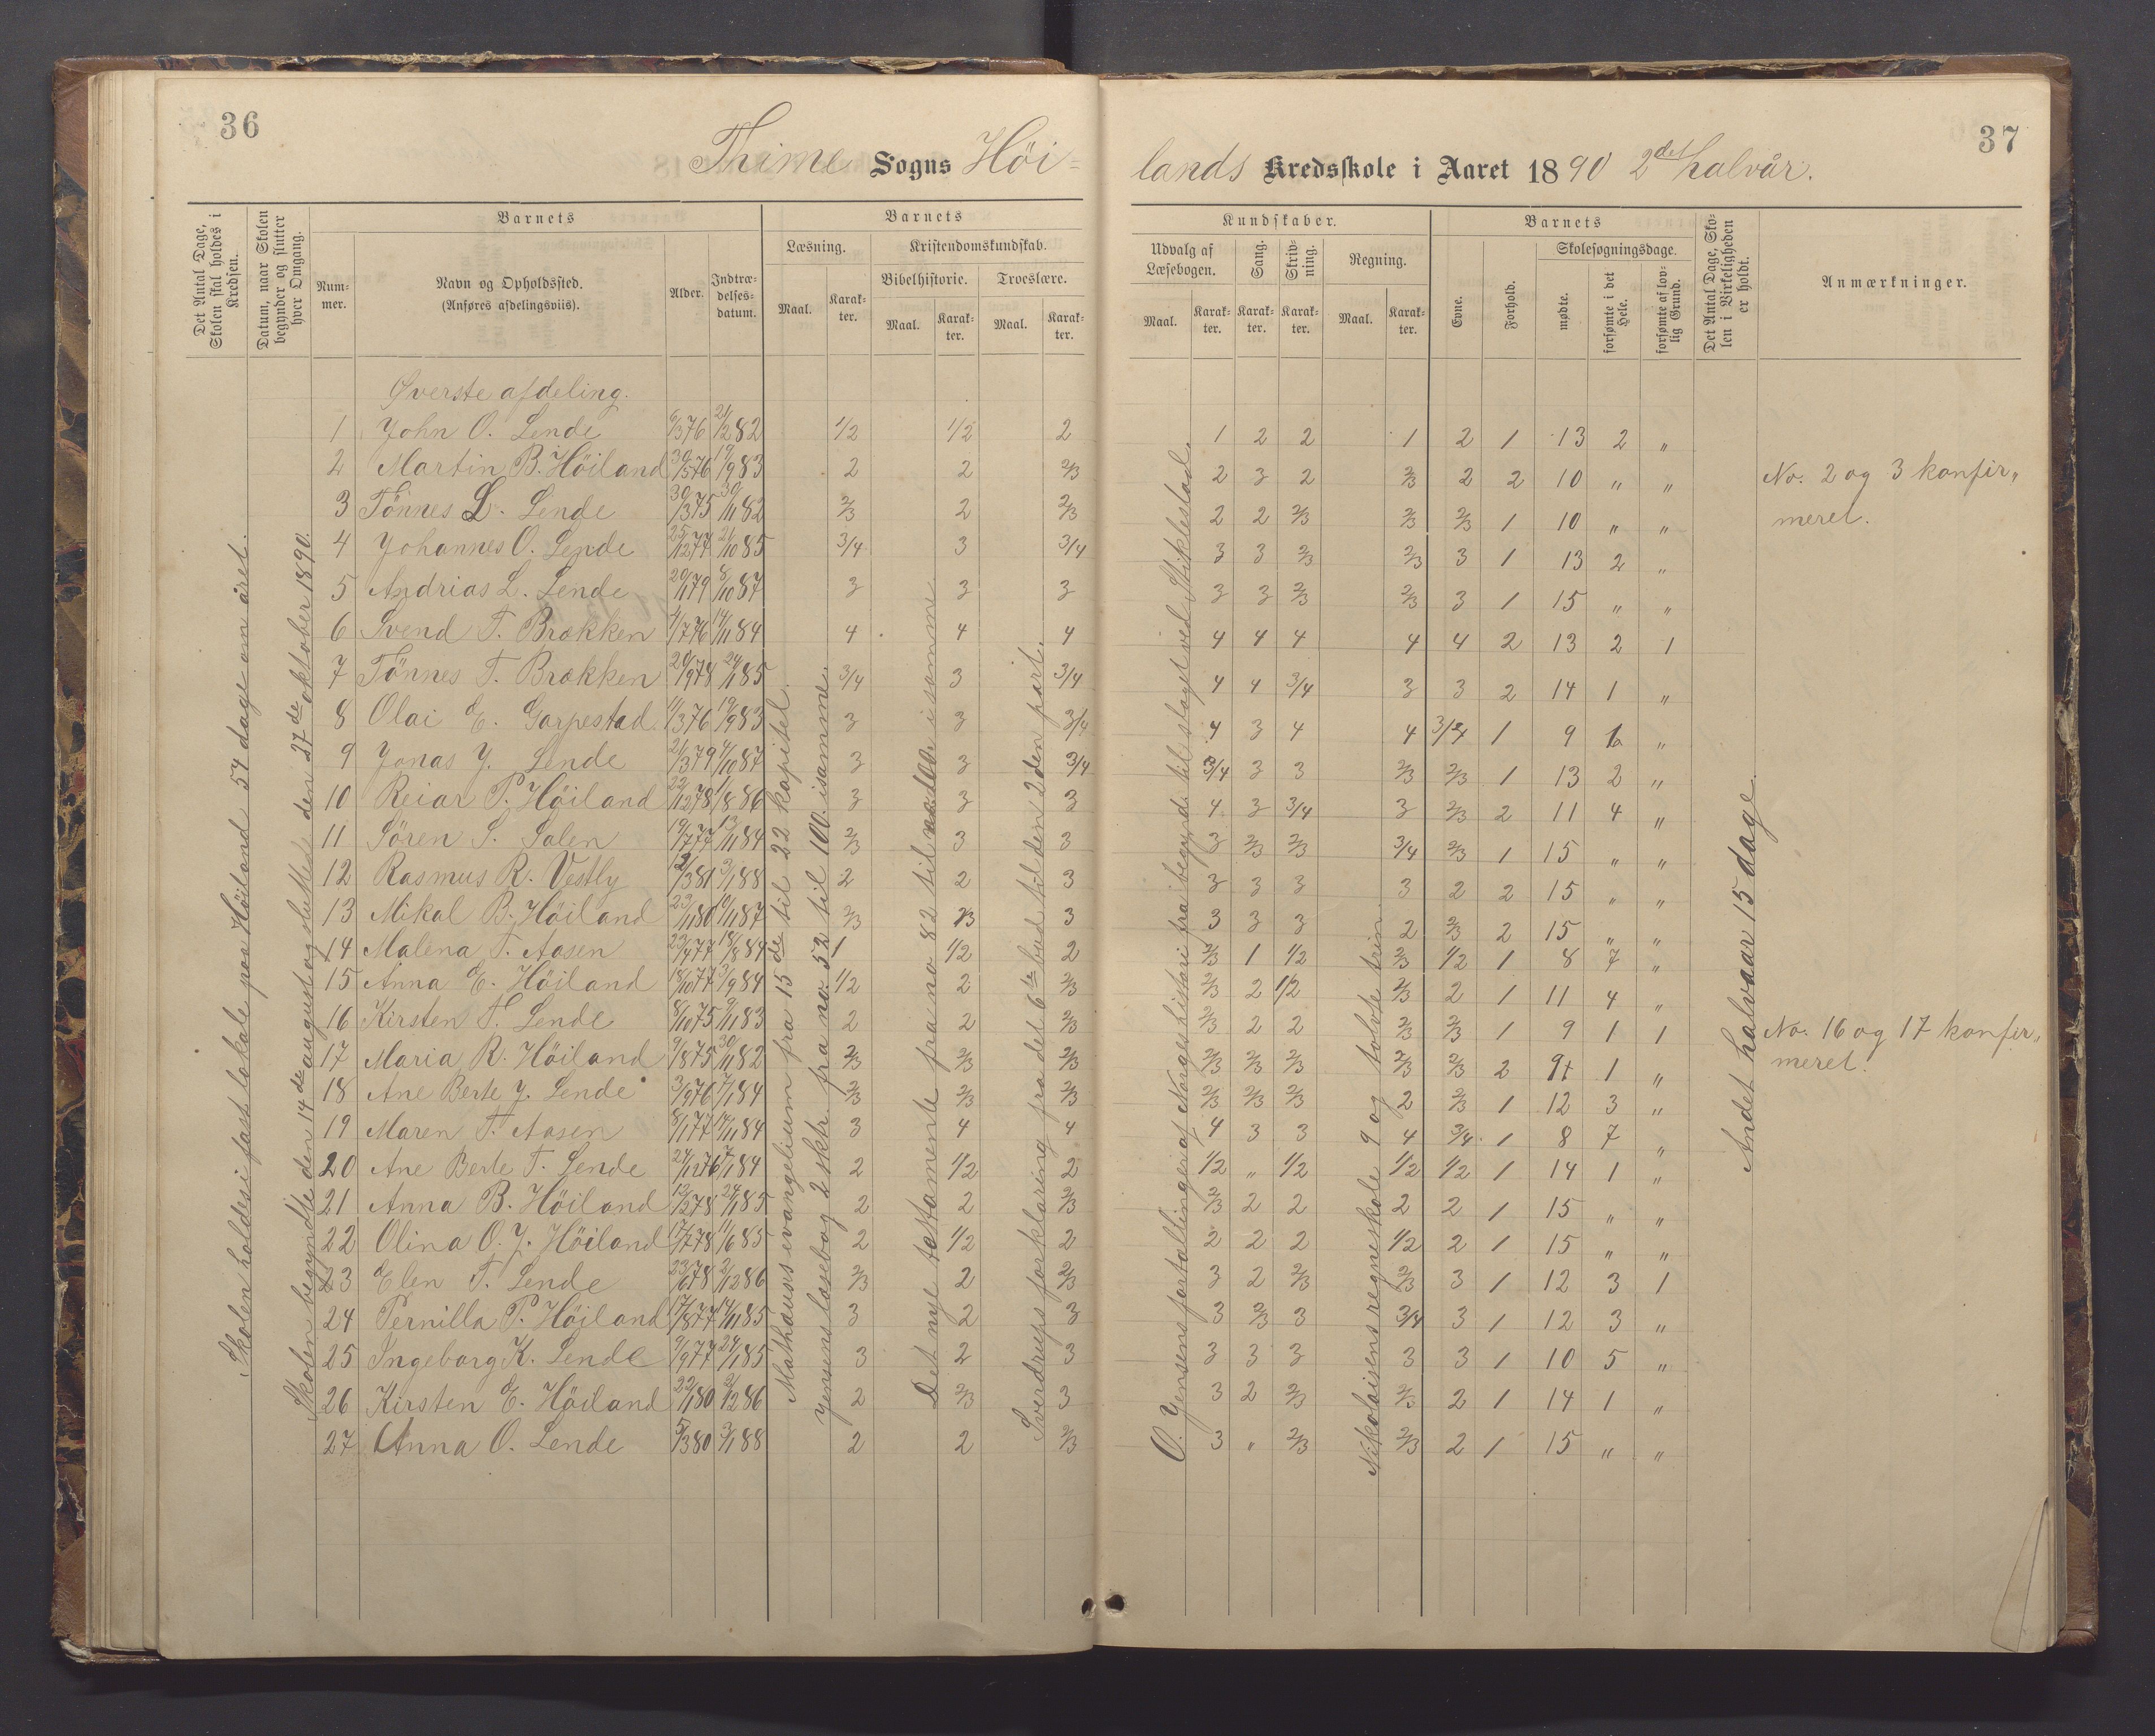 36
Thime Sogns Höi=
Det Antal Dage, Skolen skal holdes i Kredsen.
Datum, naar Skolen begynder og slutter hver Omgang.
Barnets
Nummer.
Navn og Opholdssted.
(Anføres afdelingsviis).
Alder.
Indtrædelsesdatum.
Barnets
Læsning.
Kristendomskundskab.
Bibelhistorie.
Troeslære.
Maal.
Karakter.
Maal.
Karakter.
Maal.
Karakter.
Skolen holdes i fast lokale paa Höiland 54 dage om året.
Skolen begyndte den 14de august og sluttede den 27de oktober 1890.
Øverste afdeling.
1 John O. Lende 6/3 76 21/2 82 1/2 1/2 2
2 Martin B. Höiland 30/5 76 19/9 83 2 2 2/3
3 Tönnes L. Lende 30/3 75 30/11 82 2/3 2 2/3
4 Johannes O. Lende 25/12 77 21/10 85 3/4 3 3/4
5 Andrias L. Lende 20/1 79 8/10 87 3 3 3
6 Svend T. Brækken 4/7 76 14/11 84 4 4 4
7 Tönnes T. Brækken 20/9 78 24/1 85 3/4 3 3/4
8 Olai E. Garpestad 11/3 76 19/9 83 3 3 3/4
9 Jonas J. Lende 21/3 79 4/10 87 3 3 3/4
10 Reiar P. Höiland 22/12 78 1/8 86 3 3 3
11 Sören S. Salen 19/7 77 13/11 84 2/3 3 3
12 Rasmus R. Vestly 12/3 81 3/1 88 2 2 3
13 Mikal B. Höiland 23/11 80 10/11 87 2/3 2/3 3
14 Malena T. Aasen 23/4 77 18/8 84 1 1/2 2
15 Anna E. Höiland 18/10 77 3/9 84 1/2 2 2/3
16 Kirsten T. Lende 8/10 75 9/11 83 2 2 2/3
17 Maria R. Höiland 9/8 75 30/11 82 2/3 2/3 2/3
18 Ane Berte J. Lende 3/9 76 7/1 84 2/3 2/3 2/3
19 Maren T. Aasen 8/1 77 14/11 84 3 4 4
20 Ane Berte T. Lende 24/12 76 7/1 84 2 1/2 2
21 Anna B. Höiland 12/3 78 24/1 85 2 2 2/3
22 Olina O. J. Höiland 17/7 78 11/6 85 2 1/2 2
23 Elen T. Lende 23/6 78 2/12 86 2/3 2 2/3
24 Pernilla P. Höiland 17/8 77 14/11 85 3 2 3
25 Ingeborg K. Lende 9/9 77 24/1 85 3 2 3
26 Kirsten E. Höiland 22/1 80 2/12 86 2 2/3 3
27 Anna O. Lende 5/3 80 3/1 88 2 2 2/3
Mathæus's evangelium fra 15de til 22 kapitel.
Jensens læsebog 2 sktr. fra no. 52 til 100. isamme.
Det nye testamente fra no 82 til isamme
Sverdrups forklaring fra det 6te bud til den 2den part.
37
lands Kredsskole i Aaret 1890 2det halvår.
Kundskaber.
Udvalg af Læsebogen.
Sang.
Skrivning.
Regning.
Maal.
Karakter.
Karakter.
Karakter.
Maal.
Karakter.
Barnets
Evne.
Forhold.
Skolesøgningsdage.
mødte.
forsømte i det Hele.
forsømte af lovlig Grund.
Det Antal Dage, Skolen i Virkeligheden er holdt.
Anmærkninger.
1 2 2 1 2 1 13 2 "
2 3 2 2/3 2 2 10 " " No. 2 og 3 konfir"
2 2 2/3 2/3 2/3 1 10 " " meret.
3 3 2/3 2/3 3 1 13 2 "
3 3 2/3 2/3 3 1 15 " "
4 4 4 4 4 2 13 2 1
4 4 3/4 3 3 2 14 1 "
4 3 4 4 3/4 1 9 "
3/4 3 3 2/3 2/3 1 13 2 "
4 3 3/4 3 2/3 2 11 4 "
3 2/3 2/3 3/4 2/3 1 15 " "
3 3 3 3 2 2 15 " "
3 3 3 2 2/3 2 15 " "
2/3 1 1/2 2/3 1/2 1 8 7 "
2/3 2 1/2 2/3 2 1 11 4 "
2/3 2 2 2/3 2/3 1 9 1 1 No. 16 og 17 konfir"
2/3 2/3 2/3 2/3 2/3 2 9 1 " meret.
2/3 2/3 2/3 2 2/3 1 12 3 "
4 3 3 4 3/4 1 8 7 "
1/2 " 1/2 1/2 1/2 1 14 1 "
2/3 2 2 2 2 1 15 " "
2 2 2 1/2 2 1 15 " "
3 2 2/3 2/3 3 1 12 3 1
3 2/3 3 3/4 3 1 12 3 "
3 3 3 3 3 1 10 5 "
3 2 2/3 2/3 2 1 14 1 "
3 " 2/3 2/3 2 1 15 " "
O. Jensens fortællinger af Norges historie fra begynd. til slaget ved Stiklestad.
Nikolaisens regneskole 9 og tolvte trin.
Andet halvaar 15 dage.